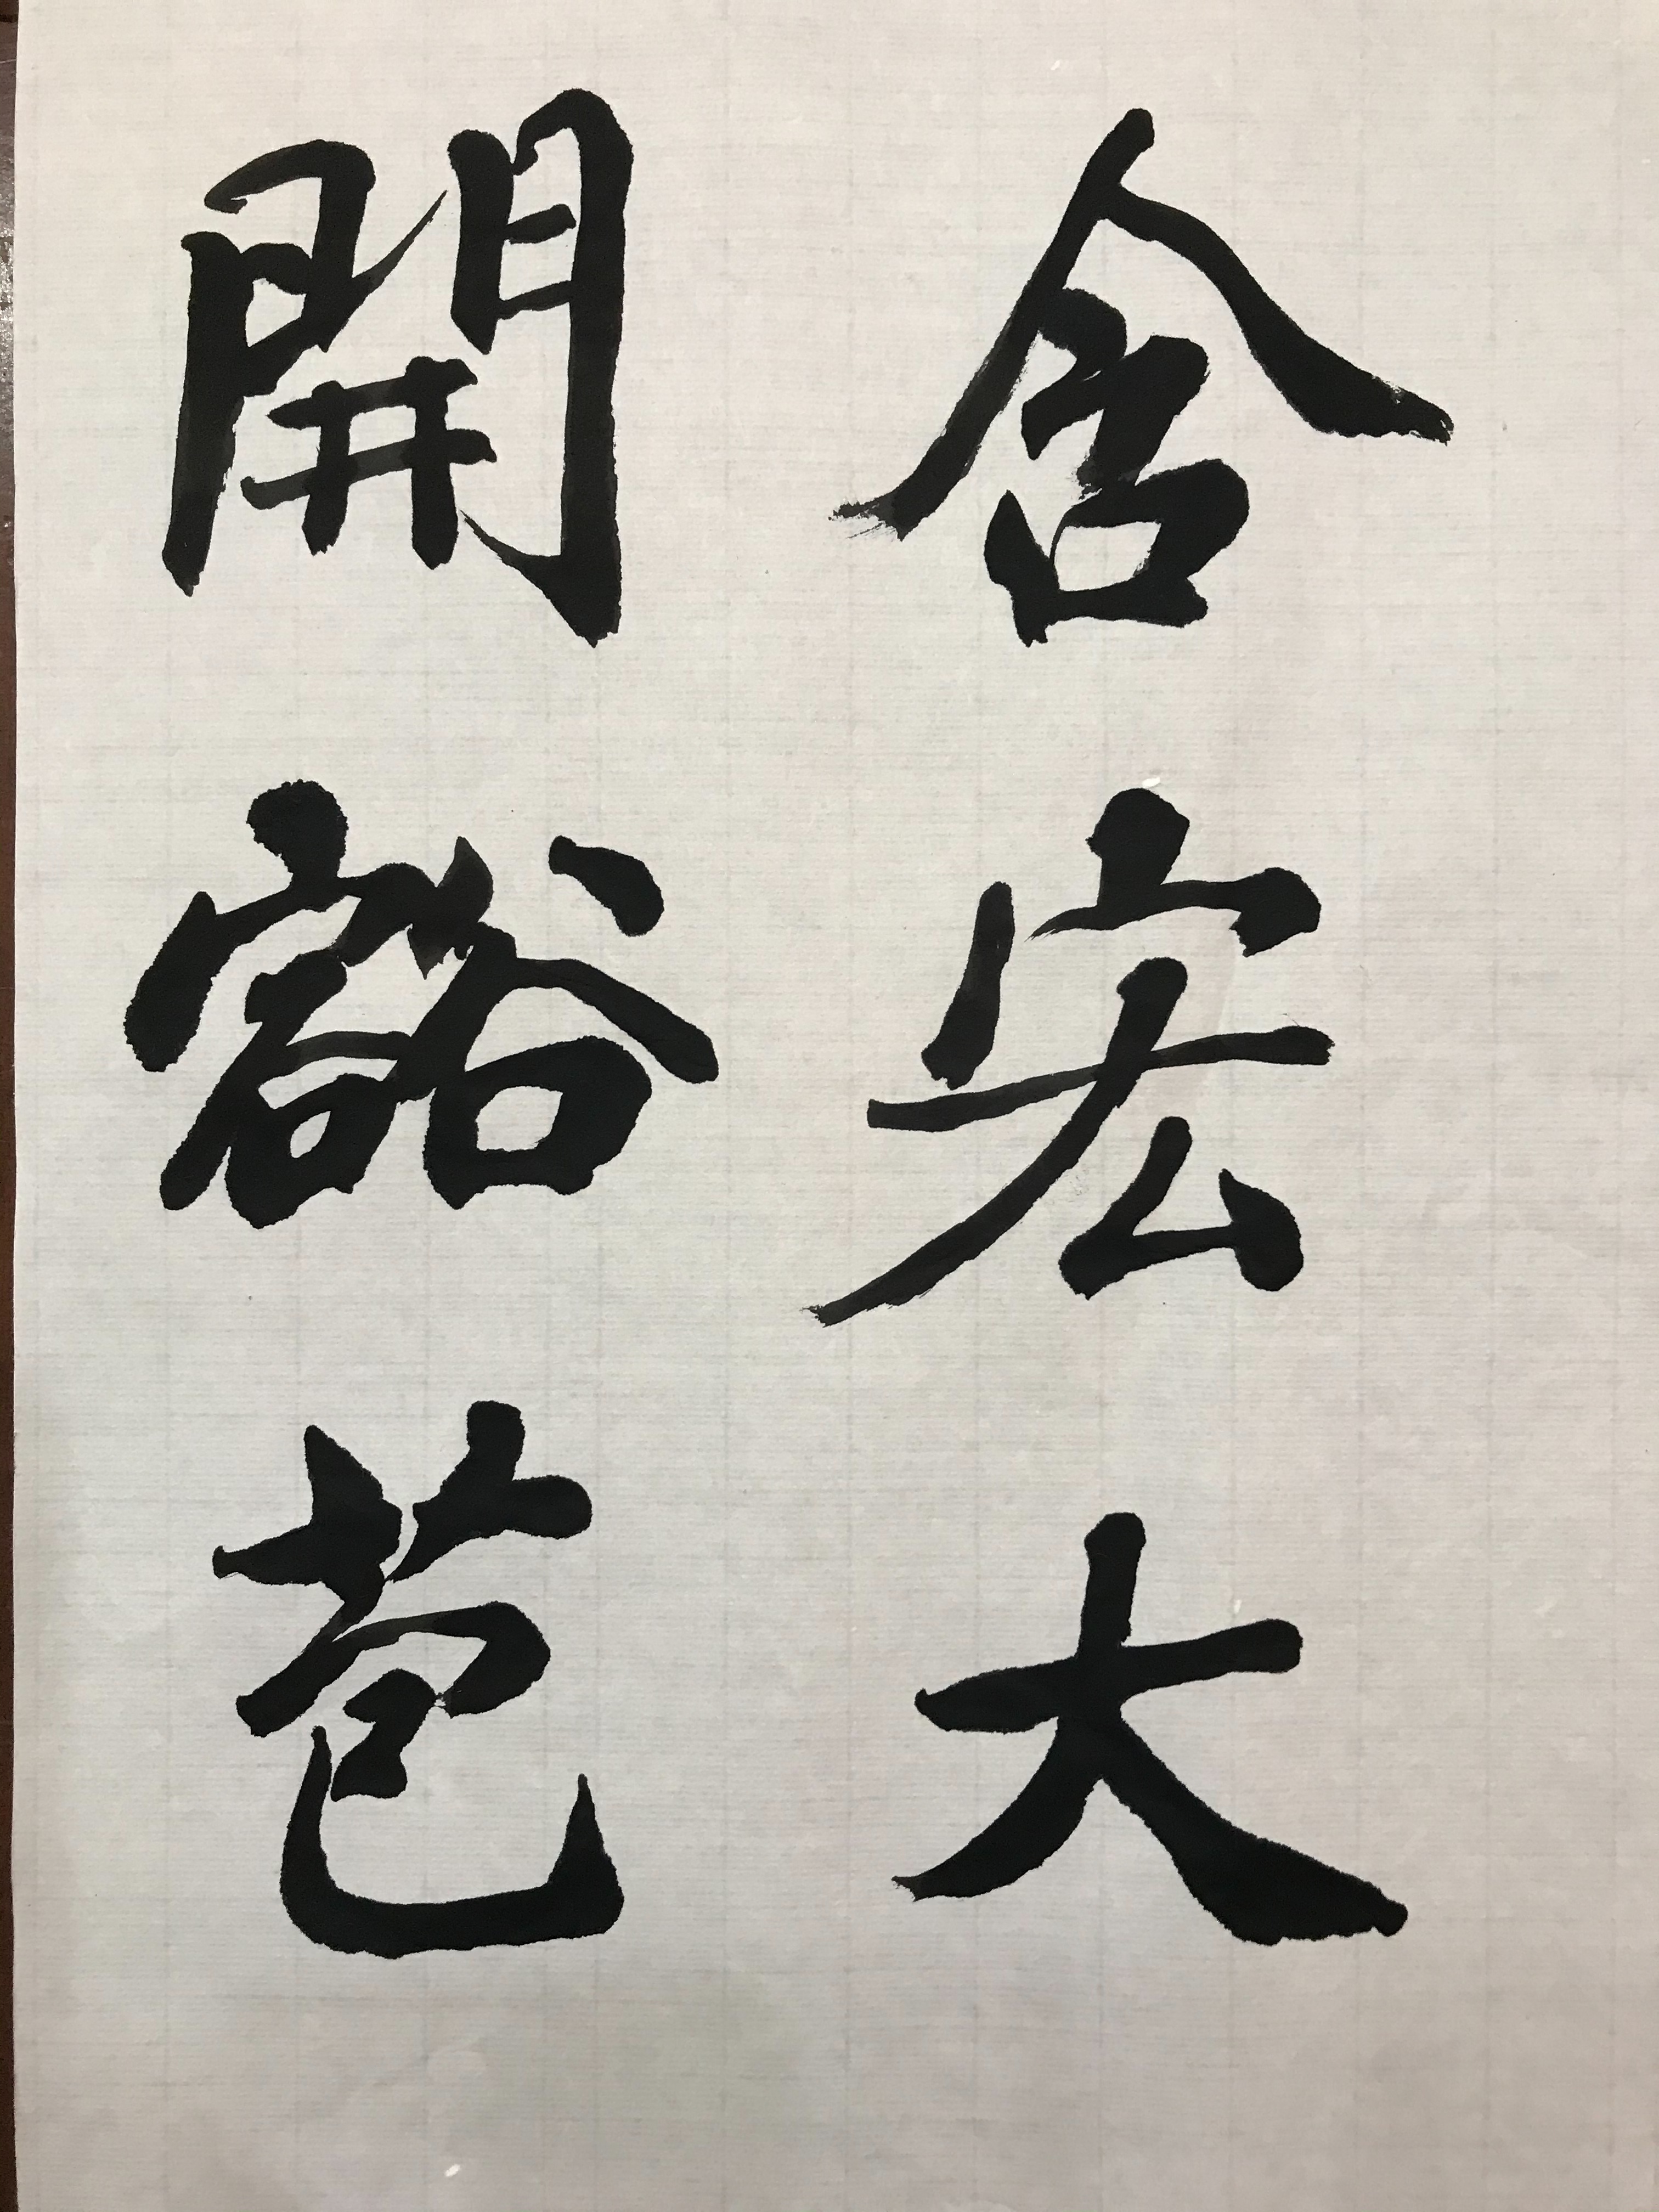 含宏大
開豁苞